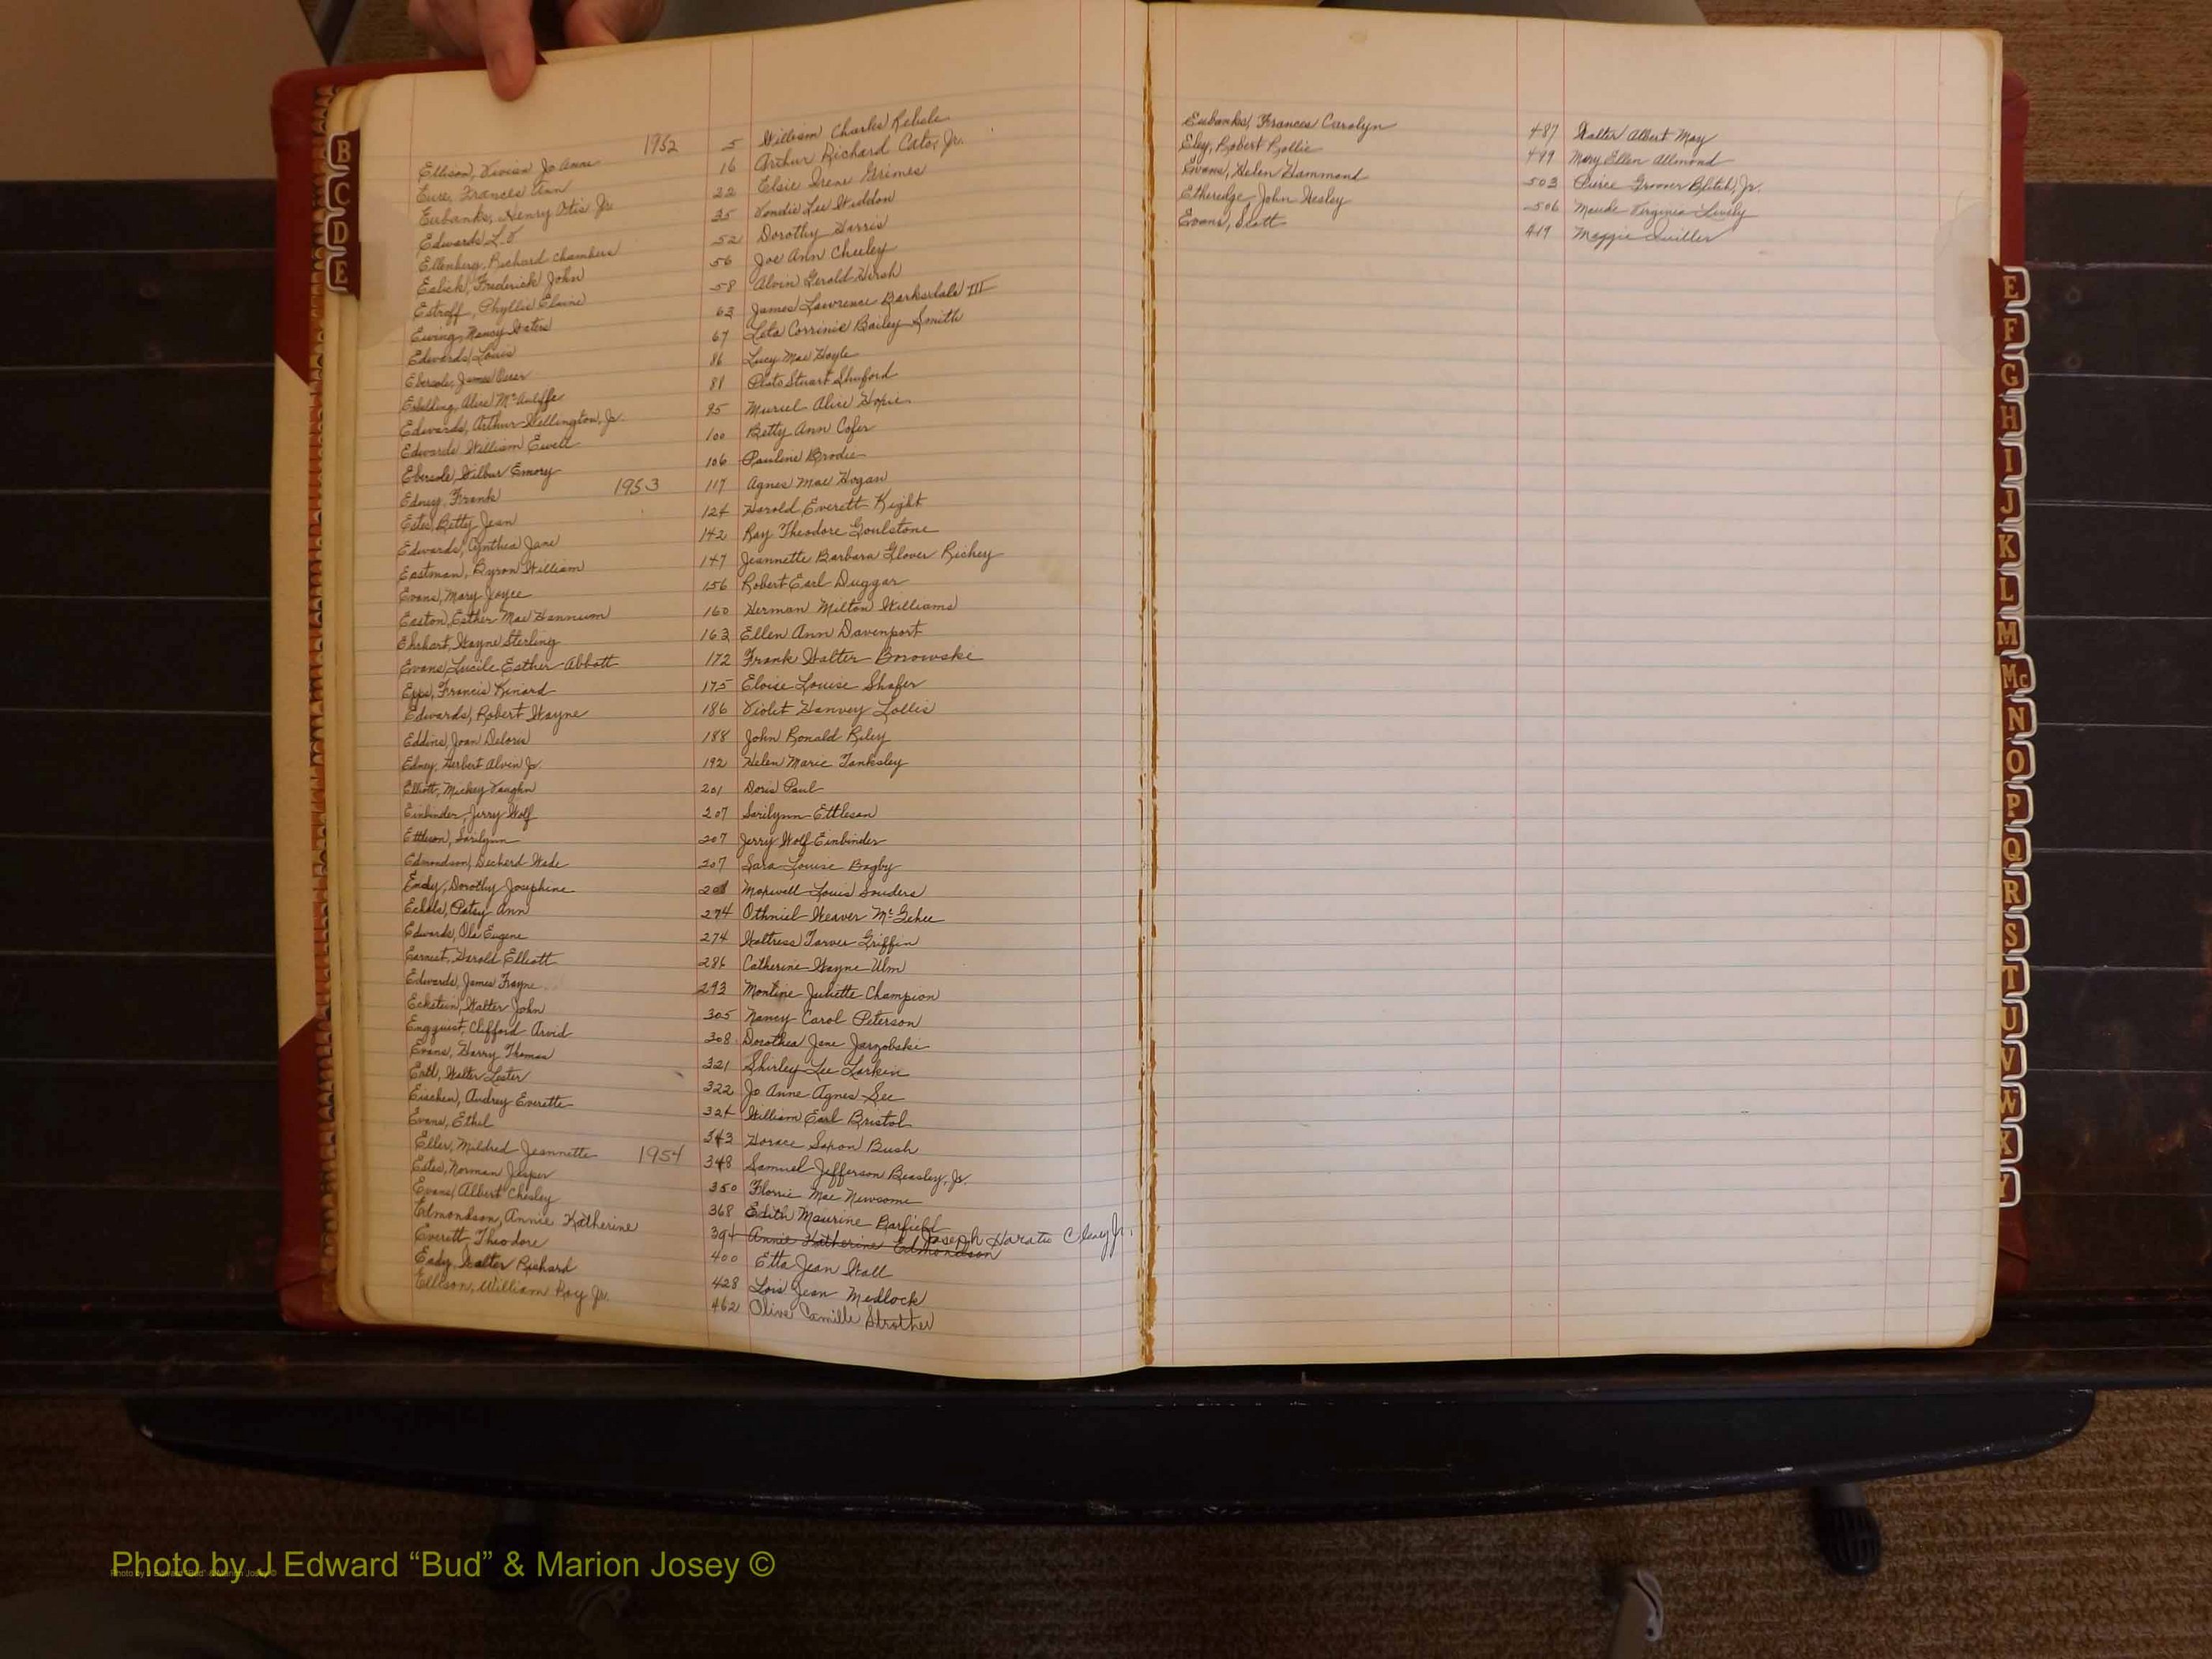 Ellison, Vivian Jo Anne 1952 5 William Charles
Eure, Frances Ann 16 Arthur Richard Cato, Jr.
Eubanks, Henry Otis Jr 22 Elsie Irene Grimes
Edwards L.V. 35 Vondie Lee Widdon
Ellenberg, Richard Chambers 52 Dorothy Harris
Frederick John 56 Joe Ann Cheeley
Estroff, Phyllis Elaine 58 Alvin Gerald Hirsh
Ewing, Nancy Waters 63 James Lawrence Barksdale III
Edwards, Louis 67 Lola Corrinie Bailey Smith
Ebersole, James 86 Lucy Mae Hoyle
Alice McAuliffe 81 Plato Stuart Shuford
Edwards, Arthur Wellington, Jr. 95 Muriel Alice
Edwards William Ewell 100 Betty Ann Cofer
Ebersole, Wilbur Emory 106 Pauline Brodie
Edney, Frank 1953 117 Agnes Mae Hogan
Estes, Betty Jean 124 Harold Everett Kight
Edwards, Cynthia Jane 142 Ray Theodore Goulstone
Eastman, Byron William 147 Jeannette Barbara Glover Richey
Evans, Mary Joyce 156 Robert Earl Duggar
Easton, Esther Mae Hannum 160 Herman Milton Williams
Ehrhart, Wayne Sterling 163 Ellen Ann Davenport
Evans, Lucile Esther Abbott 172 Frank Walter Borowski
Epps, Francis Kinard 175 Eloise Louise Shafer
Edwards, Robert Wayne 186 Violet Hanvey Lollis
Eddins, Joan Deloris 188 John Ronald Riley
Edney, Herbert Alvin Jr. 192 Helen Marie Tanksley
Elliott, Mickey Vaughn 201 Doris Paul
Einbinder, Jerry Wolf 207 Sarilynn Ettleson
Ettleson, Sarilynn 207 Jerry Wolf Einbinder
Edmondson, Decherd Wade 207 Sara Louise Bagby
Eady, Dorothy Josephine Maxwell Louis Souders
Echols, Patsy Ann 274 Othniel Weaver McGehee
Edwards, Ola Eugene 274 Waltress Tarver Griffin
Earnest, Harold Elliott 286 Catherine Wayne Ulm
Edwards, James Frayne 293 Montine Juliette Champion
Eckstein, Walter John 305 Nancy Carol Peterson
Engquist, Clifford Arvid 308 Dorothea Jane Jarzobski
Evans, Harry Thomas 321 Shirley Lee Larkin
Walter Lester 322 Jo Anne Agnes See
Eischen, Audrey Everette 324 William Earl Bristol
Evans, Ethel 343 Horace Saxon Bush
Eller, Mildred Jeannette 1954 348 Samuel Jefferson Beasley, Jr.
Estes, Norman Jasper 350 Florrie Mae Newsome
Evans, Albert Chesley 368 Edith Maurine Barfield
Edmondson, Annie Katherine 394 Annie Katherine Edmondson Joseph Horatio Clancy Jr.
Everett, Theodore 400 Etta Jean Wall
Eady, Walter Richard 428 Lois Jean Medlock
Ellison, William Roy Jr. 462 Olive Camille Strother
Eubanks, Frances Carolyn 487 Walter Albert May
Eley, Robert Rollie 499 Mary Ellen Allmond
Evans, Helen Hammond 503 Pierce Groover Blitch, Jr.
Etheredge, John Wesley 506 Maude Virginia Lively
Evans, Scott 419 Maggie Quiller
B
C
D
E
E
F
G
H
I
J
K
L
M
Mc
N
O
P
Q
R
S
T
U
V
W
X
Y
Photo by J Edward “Bud” & Marion Josey ©
Photo by J Edward “Bud” & Marion Josey ©